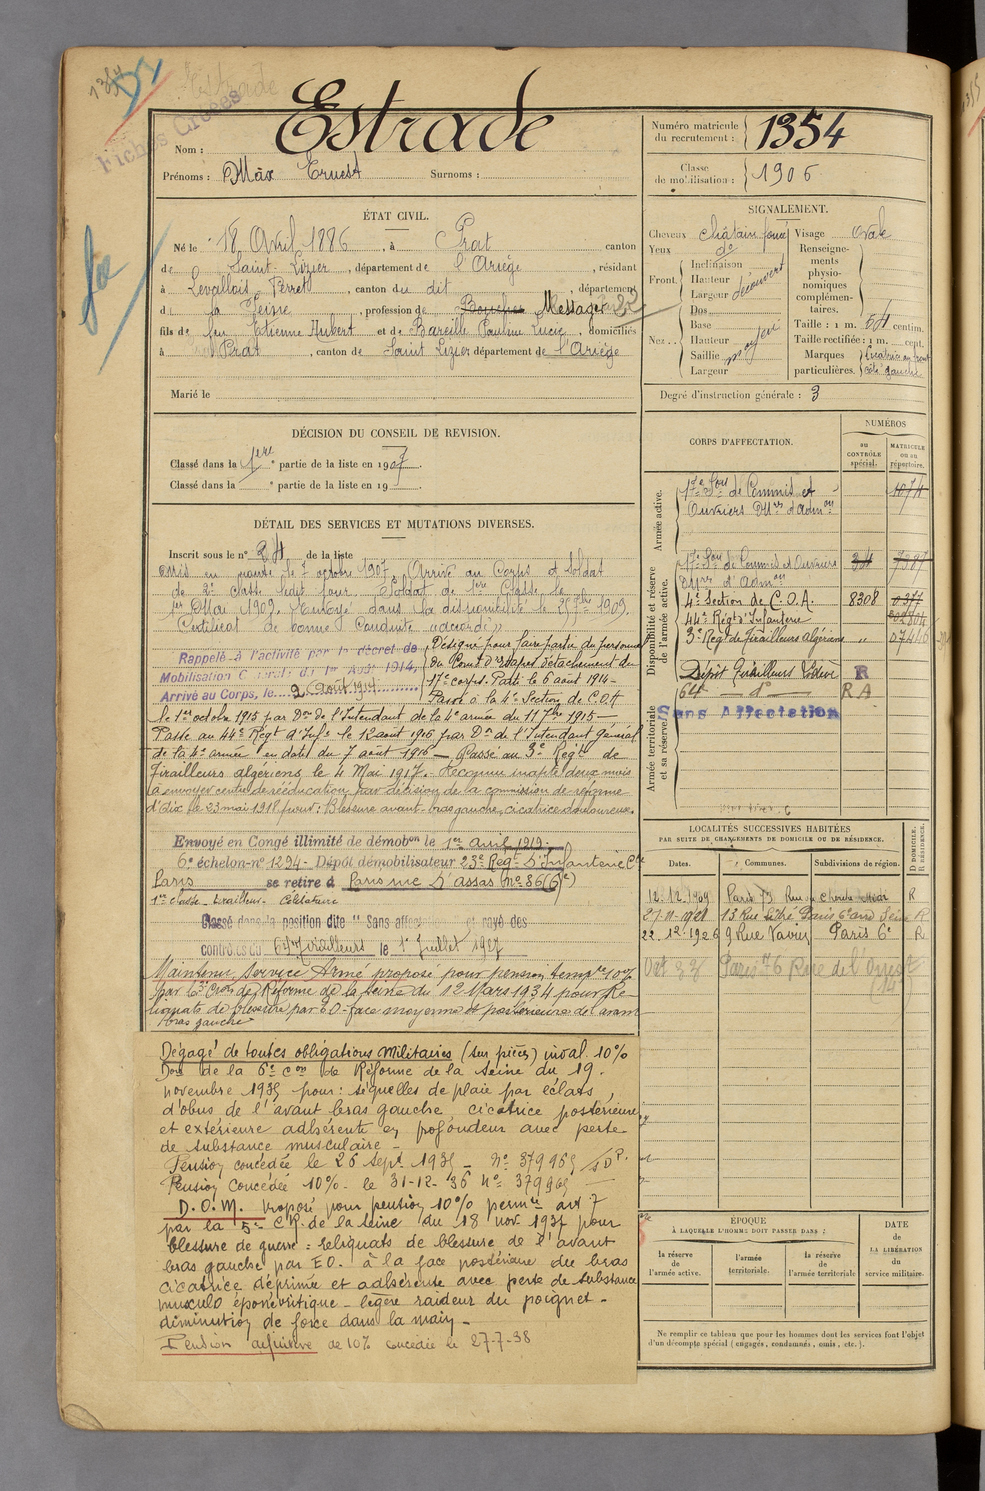 1354
Estrade
Fiches Créées
Nom : Estrade
Prénoms : Max Ernest Surnoms :
Numéro matricule du recrutement : 1354
Classe de mobilisation : 1906
ÉTAT CIVIL.
Né le 18 Avril 1886, à Prat canton
de Saint-Lizier, département de l'Ariège, résidant
à Levallois-Perret, canton du dit, département
d la Seine, profession de Boucher Messager
fils de feu Etienne Hubert et de Bareille Pauline Lucie, domiciliés
à Prat, canton de Saint Lizier département de l'Ariège
Marié le
SIGNALEMENT.
Cheveux châtain foncé
Yeux do
Front Inclinaison
Hauteur
Largeur découvert
Nez Dos
Base
Hauteur
Saillie moyen
Largeur
Visage Ovale
Renseignements physionomiques complémentaires.
Taille : 1 m. 54 centim.
Taille rectifiée : 1 m. cent.
Marques particulières. Cicatrice au front côté gauche
Degré d'instruction générale : 3
DÉCISION DU CONSEIL DE REVISION.
Classé dans la 1ère partie de la liste en 1907.
Classé dans la e partie de la liste en 19
DÉTAIL DES SERVICES ET MUTATIONS DIVERSES.
Inscrit sous le n° 24 de la liste
mis en route le 7 octobre 1907. Arrivé au Corps et Soldat
de 2e classe ledit jour. Soldat de 1re Classe le
1er Mai 1909. Renvoyé dans la disponibilité le 25 7bre 1909.
Certificat de bonne Conduite "accordé"
Rappelé à l'activité par le décret de
Mobilisation Générale du 1er Août 1914,
Arrivé au Corps, le 2 Août 1914
Désigné pour faire partie du personnel
du Comt d'Etapes détachement du
17e corps. Parti le 6 août 1914 -
Passé à la 4e Section de C.O.A
le 1er octobre 1915 par Don de l'Intendant de la 4e armée du 11 7bre 1915 -
Passé au 44e Régt d'Infie le 12 août 1916 par Dn de l'Intendant Général
de la 4e armée en date du 7 août 1916 - Passé au 3e Régt de
Tirailleurs algériens le 4 Mai 1917. Reconnu inapte deux mois
à envoyer centre de rééducation par décision de la commission de réforme
d'Aix le 23 mai 1918 pour : Blessure avant-bras gauche, cicatrice douloureuse.
Envoyé en Congé illimité de démobon le 1er Avril 1919.
6e échelon-n° 1294 - Dépôt démobilisateur 23e Regt D'Infanterie Cle
Paris se retire à Paris rue D'assas No 86 (6e)
1re classe - tirailleur - Célibataire
Classé dans la position dite "Sans affectation" et rayé des
contrôles du 64e Tirailleurs le 1er Juillet 1927
Maintenu Service Armé proposé pour pension tempre 10%
par 6e Cion de Réforme de la Seine du 12 Mars 1934 pour Re-
liquats de blessure par E.O - face moyenne et postérieure de l'avant
bras gauche
Dégagé de toutes obligations militaires (sur pièces) inval. 10%
Don de la 6e Con de Réforme de la Seine du 19
novembre 1935 pour : séquelles de plaie par éclats
d'obus de l'avant bras gauche, cicatrice postérieure
et extérieure adhérente en profondeur avec perte
de substance musculaire -
Pension concédée le 26 Sept 1935 - No 379969
Pension concédée 10% - le 31-12-36 No 379969 -
D.O.M. Proposé pour pension 10% permte art 7
par la 5e C.R. de la Seine du 18 nov 1937 pour
blessure de guerre : reliquats de blessure de l'avant
bras gauche par E O. à la face postérieure du bras
cicatrice déprimée et adhérente avec perte de substance
musculo éponévritique - légère raideur du poignet -
diminution de force dans la main -
Pension définitive de 10% concédée le 27-7-38
CORPS D'AFFECTATION.
NUMÉROS
au CONTRÔLE spécial.
MATRICULE ou au répertoire.
Armée active.
17e Son de Commis et 1074
Ouvriers Mres d'Admon
Disponibilité et réserve de l'armée active.
17e Son de Commis et Ouvriers 34
Mres d'Admon
4e Section de C.O.A. 8308
44e Régt d'Infanterie
3e Régt de Tirailleurs algériens "
Armée territoriale et sa réserve.
Dépôt Tirailleurs Lodève R
64e - do - RA
Sans Affectation
LOCALITÉS SUCCESSIVES HABITÉES
PAR SUITE DE CHANGEMENTS DE DOMICILE OU DE RÉSIDENCE.
Dates. Communes. Subdivisions de région. D. DOMICILE. R. RÉSIDENCE.
12.12.1909 Paris 73 Rue du Cherche Midi R
27-11-1921 13 Rue Littré Paris 6e arrd Seine R
22.12.1926 9 Rue Vavin Paris 6e R
Oct 33 Paris 6 Rue de l'Ouest
(14e)
ÉPOQUE
À LAQUELLE L'HOMME DOIT PASSER DANS :
la réserve de l'armée active.
l'armée territoriale.
la réserve de l'armée territoriale
DATE de LA LIBÉRATION du service militaire.
Ne remplir ce tableau que pour les hommes dont les services font l'objet
d'un décompte spécial (engagés, condamnés, omis, etc.).